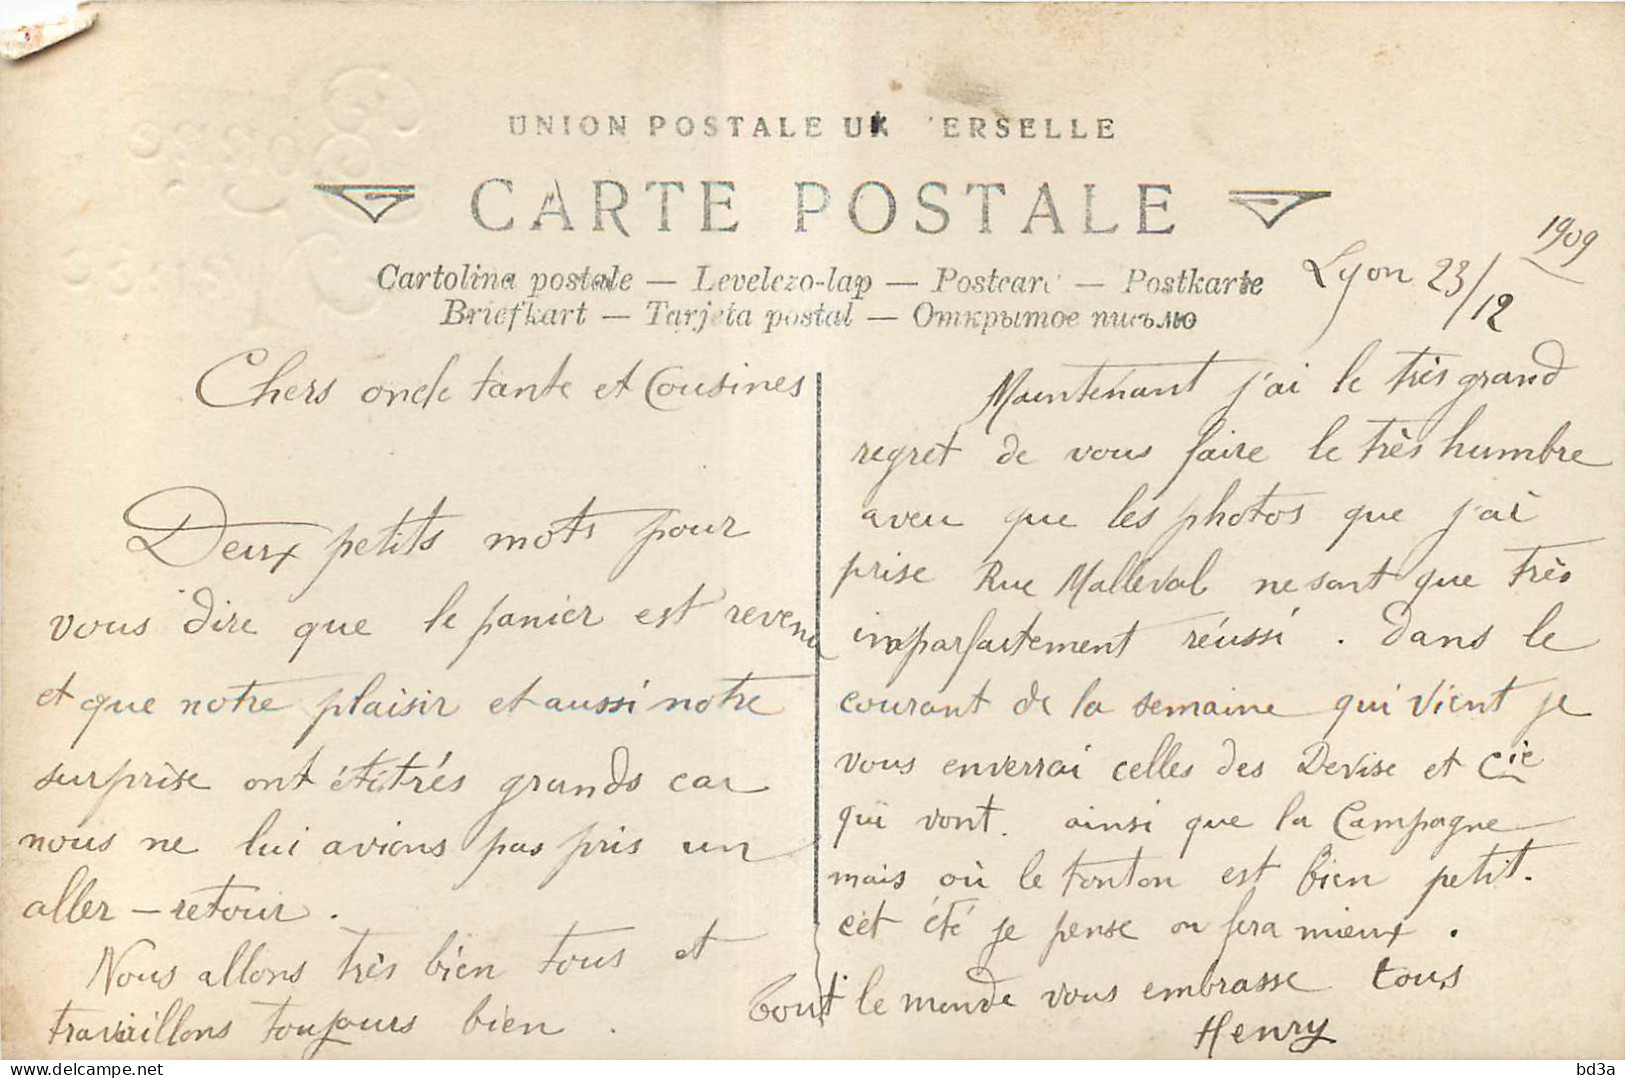 UNION POSTALE UN ERSELLE
CARTE POSTALE
Cartolina postale — Levelezo-lap — Postcard — Postkarte
Briefkart — Tarjeta postal — Открытое письмо
1909
Lyon 23/12
Chers oncle tante et Cousines
Deux petits mots pour
vous dire que le panier est revenu
et que notre plaisir et aussi notre
surprise ont été très grands car
nous ne lui avions pas pris un
aller - retour .
Nous allons très bien tous et
travaillons toujours bien .
Maintenant j'ai le très grand
regret de vous faire le très humbre
aveu que les photos que j'ai
prise Rue Malleval ne sont que très
imparfaitement réussi . Dans le
courant de la semaine qui vient je
vous enverrai celles des Devise et Cie
qui vont. ainsi que la Campagne
mais où le tonton est bien petit.
cet été je pense on fera mieux .
tout le monde vous embrasse tous
Henry
delcampe.net
bd3a